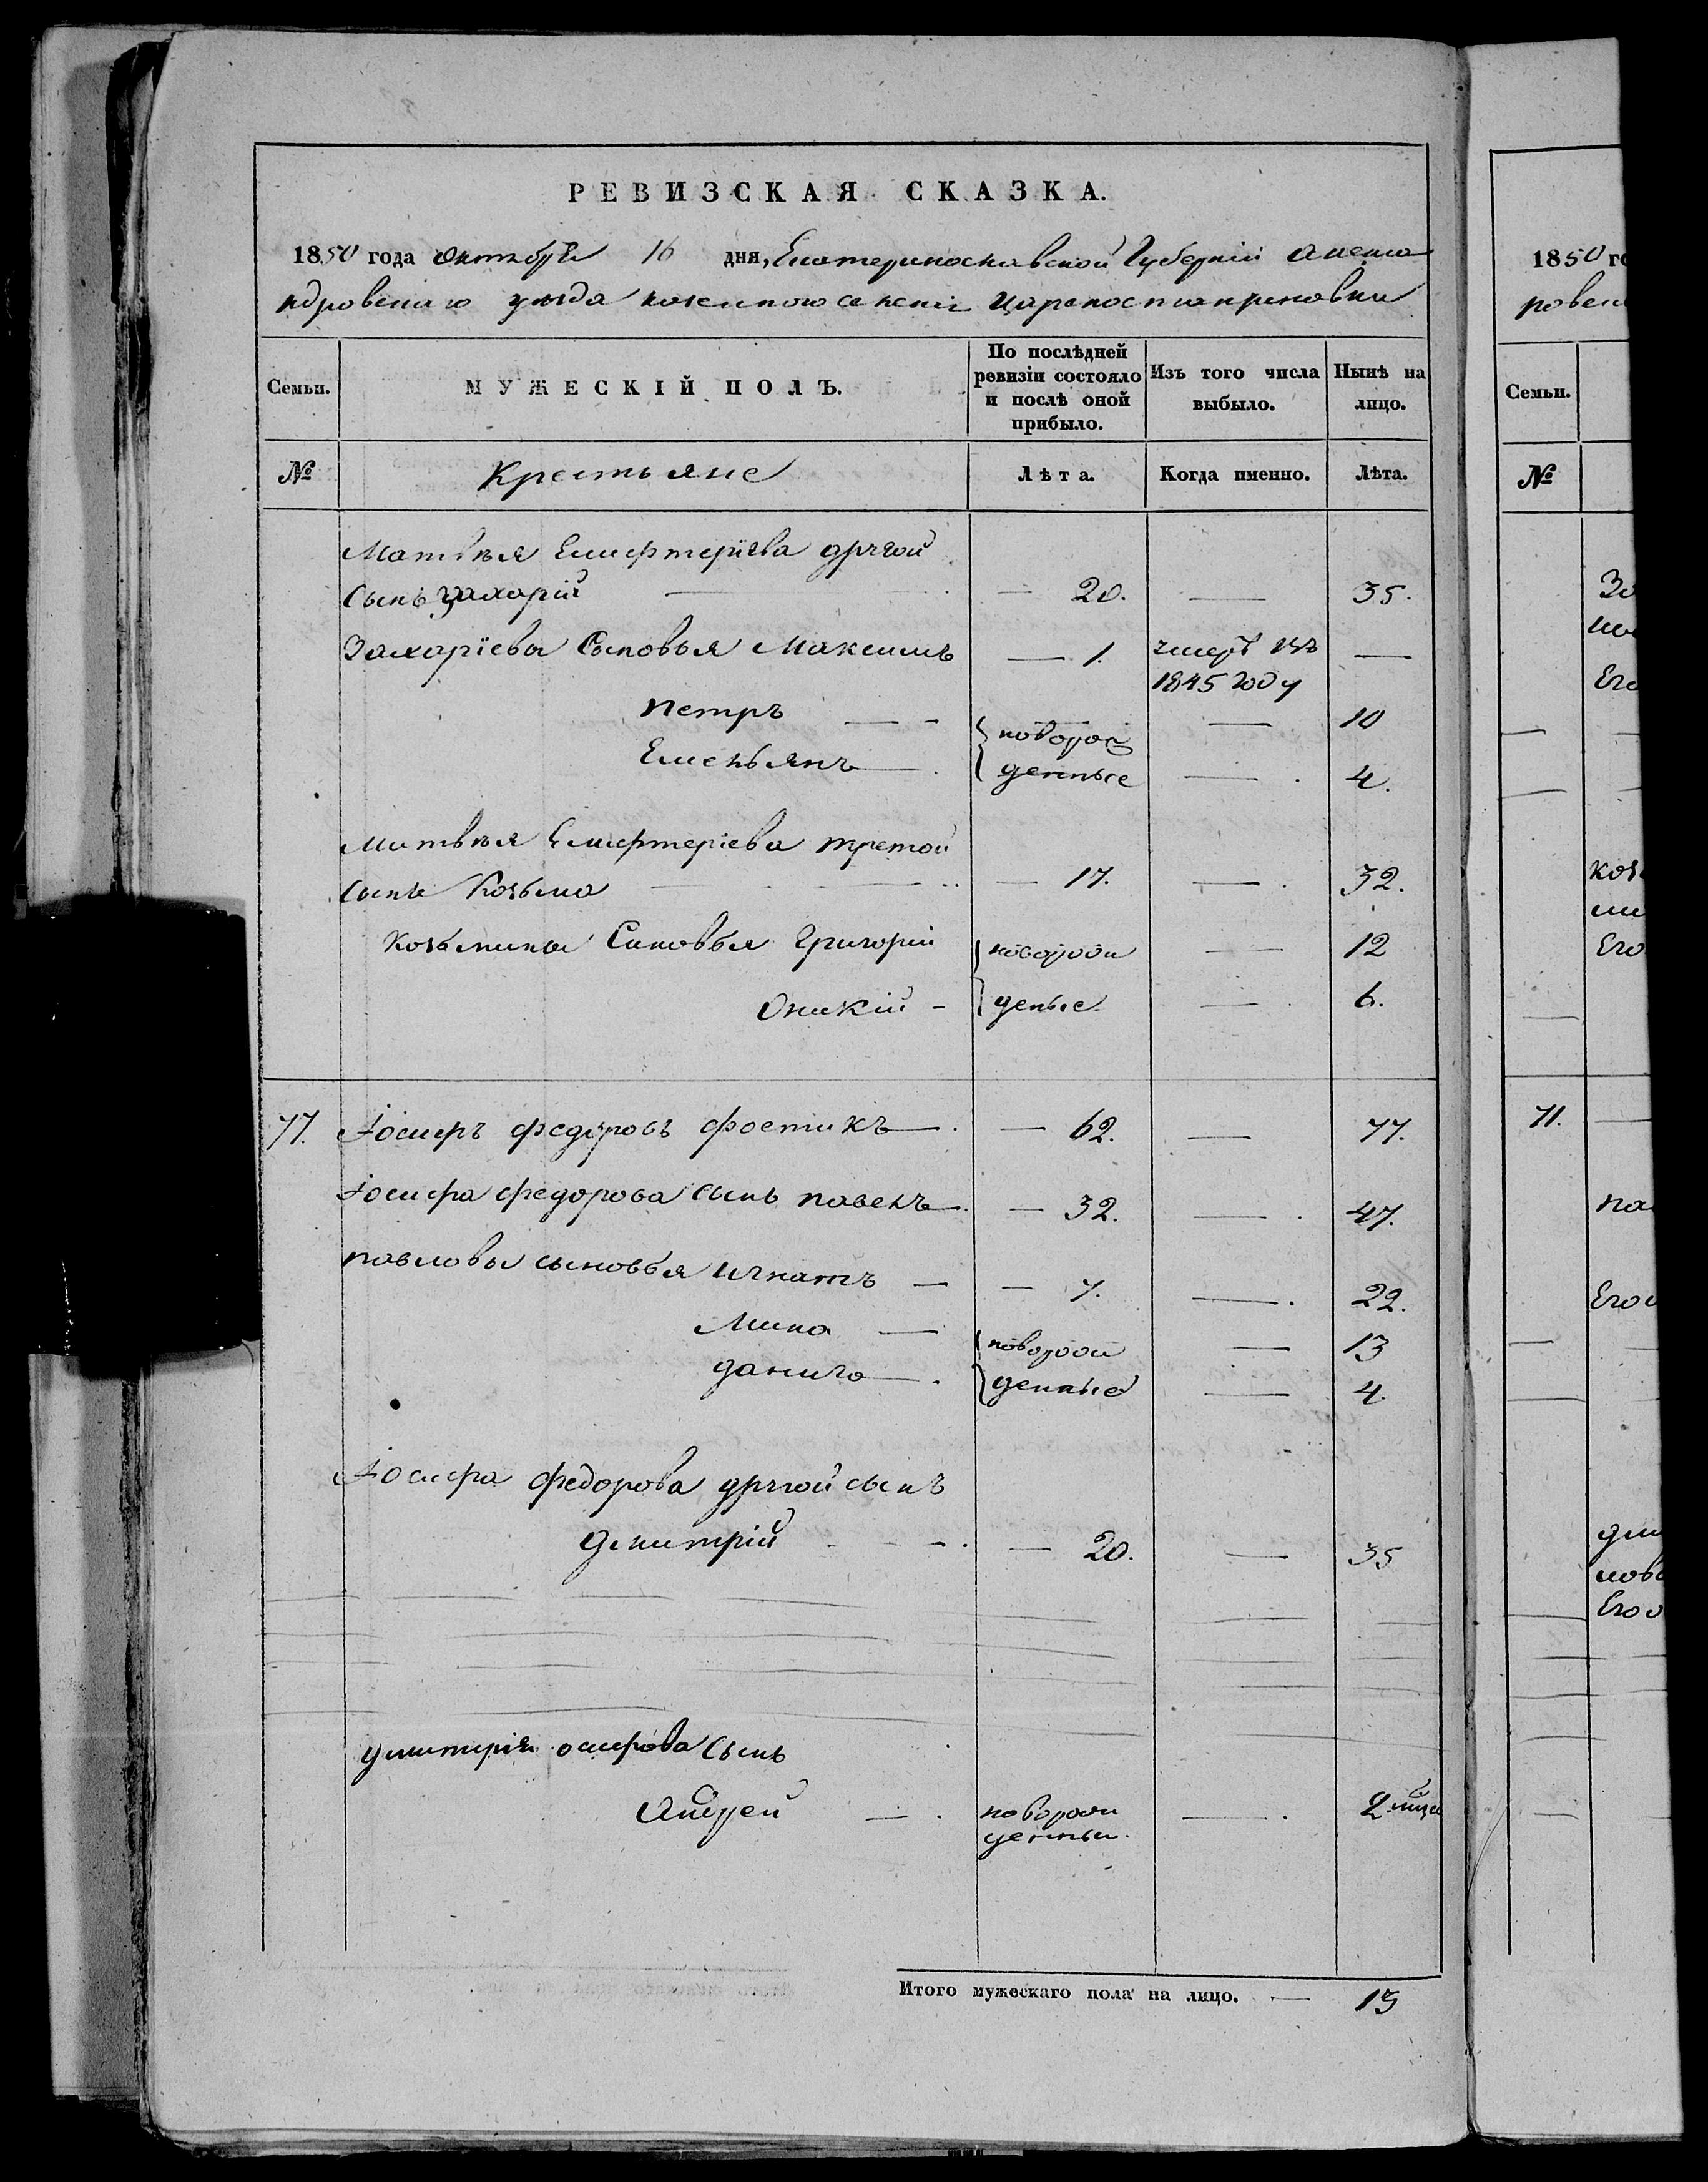 РЕВИЗСКАЯ СКАЗКА.
1850 года октября 16 дня, Екатеринославской Губерніи Алекса
ндровскаго уѣзда казенного селенія Цареконстантиновки
Семьи. МУЖЕСКІЙ ПОЛЪ. По послѣдней ревизіи состояло и послѣ оной прибыло. Изъ того числа выбыло. Нынѣ на лицо.
№ Крестьяне Лѣта. Когда именно. Лѣта.
Матвѣя Елифтеріева другой
сынъ захарій — 20. — 35.
Захаріевы Сыновья Максимъ — 1. умеръ въ 1845 году —
петръ — новорож — 10
Емельянъ — денные — 4.
Матвѣя Елифтеріева третой
сынъ Козьма — 17. — 32.
Козьмины Сыновья Григорій новорож — 12
Оникій — деные — 6.
77. Іосифъ федоровъ фостикъ — 62. — 77.
Іосифа федорова сынъ павелъ — 32. — 47.
павловы сыновья игнатъ — 7. — 22.
Мина — новорож — 13
данило — денные — 4.
Іосифа федорова другой сынъ
дмитрій — 20. — 35
дмитрія осифова Сынъ
Андрей — новорож — 2
денный.
Итого мужескаго пола на лицо. — 13
1850 го
ровск
Семьи.
№
За
Его
коз
Его
71.
па
Его
дми
Его